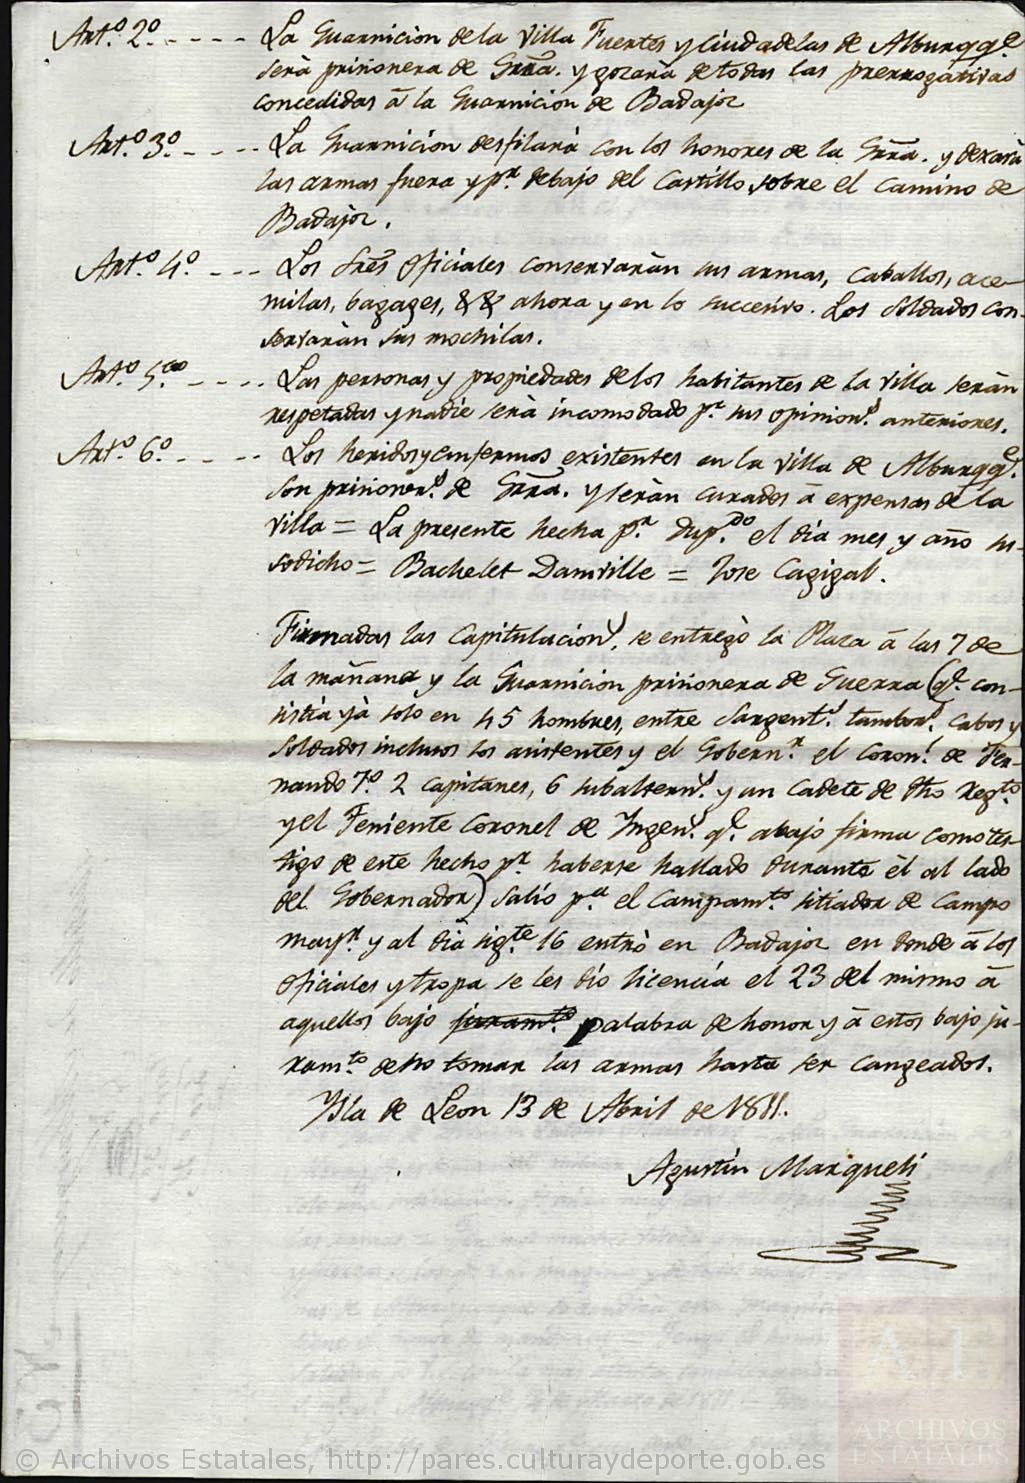 Art.º 2º ----- La Guarnicion de la Villa Fuertes y Ciudadelas de Alburqq.e
será prisionera de Grra. y gozará de todas las prerrogativas
concedidas á la Guarnicion de Badajoz
Art.º 3º. ---- La Guarnición desfilará con los honores de la Grra. y dexará
las armas fuera y p.r debajo del Castillo sobre el camino de
Badajoz.
Art.º 4.º --- Los Sres Oficiales conservarán sus armas, caballos, ace-
milas, bagages, && ahora y en lo succesivo. Los Soldados con-
servarán sus mochilas.
Art.º 5.to ---- Las personas y propiedades de los habitantes de la Villa serán
respetadas y nadie será incomodado p.r sus opinion.s anteriores.
Art.º 6.º ---- Los heridos y enfermos existentes en la Villa de Alburqq.e
son prisioner.s de Grra. y serán curados á expensas de la
Villa = La presente hecha p.r dup.do el dia mes y año su-
sodicho = Bachelet Damville = Jose Cagigal.
Firmadas las Capitulacion.s, se entregó la Plaza á las 7 de
la mañana y la Guarnicion prisionera de Guerra (q.e con-
sistia yá solo en 45 hombres, entre Sargent.s tambor.s Cabos y
Soldados inclusos los asistentes y el Gobern.r el Coron.l de Fer-
nando 7.º 2 Capitanes, 6 subaltern.s y un Cadete de dho Regto.
y el Teniente Coronel de Ingen.s q.e abajo firma como tes-
tigo de este hecho p.r haberse hallado durante él al lado
del Gobernador) salió p.a el Campam.to sitiador de Campo
may.r y al dia sig.te 16 entró en Badajoz en donde á los
oficiales y tropa se les dio licencia el 23 del mismo á
aquellos bajo juram.to palabra de honor y á estos bajo ju-
ram.to de no tomar las armas hasta ser cangeados.
Ysla de Leon 13 de Abril de 1811.
Agustín Marqueli
A I
ARCHIVOS
ESTATALES
© Archivos Estatales, http://pares.culturaydeporte.gob.es